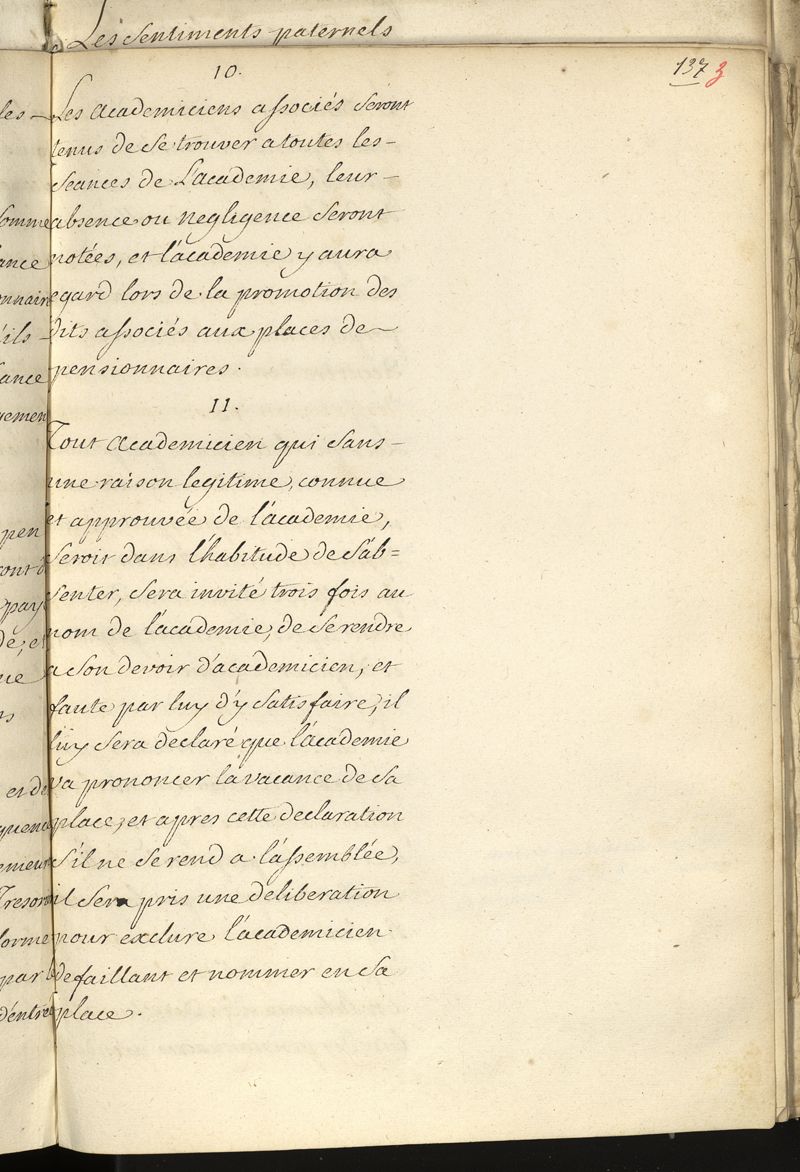 Les sentiments paternels
137 3
10.
Les academiciens associés seront
tenus de se trouver a toutes les
seances de L'academie, leur
absence ou negligence seront
notées, et l'académie y aura
egard lors de la promotion des
dits associés aux places de
pensionnaires.
11.
Tout academicien qui sans
une raison legitime, connue
et approuvée de l'académie,
seroit dans l'habitude de s'ab=
senter, sera invité trois fois au
nom de l'académie, de se rendre
a son devoir d'academicien, et
faute par luy d'y satisfaire, il
luy sera declaré que l'académie
va prononcer la vacance de sa
place, et apres cette declaration
s'il ne se rend a l'assemblée,
il sera pris une deliberation
pour exclure l'academicien
defaillant et nommer en sa
place.